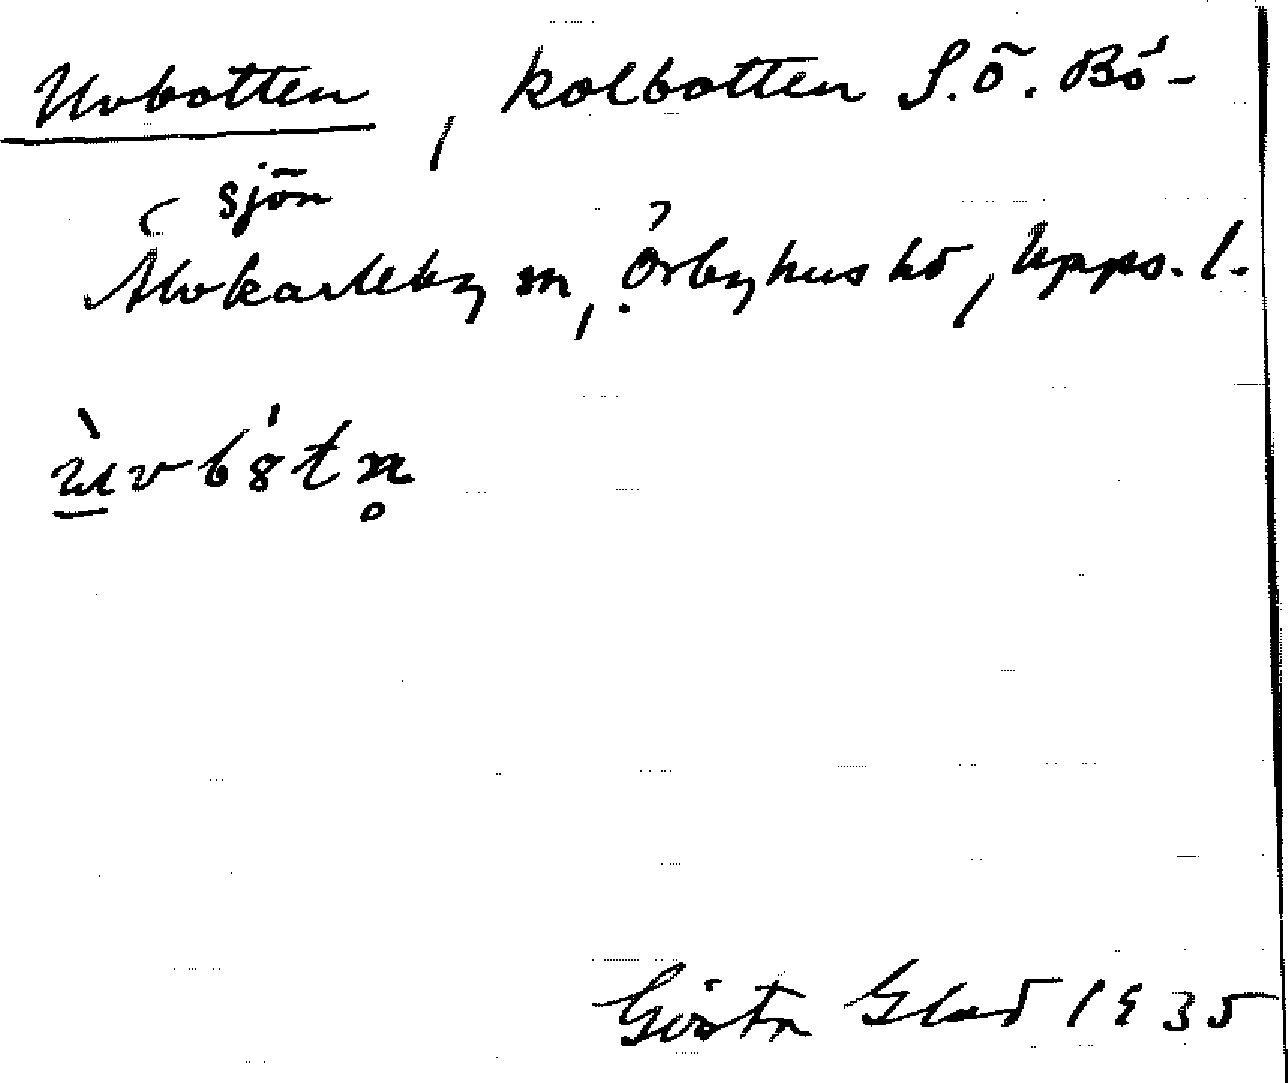 Uvbotten, kolbotten S.ö. Bö-
sjön
Älvkarleby sn, Örbyhus hd, Upps. l.
ùvbótn̥
Gösta Glad 1935